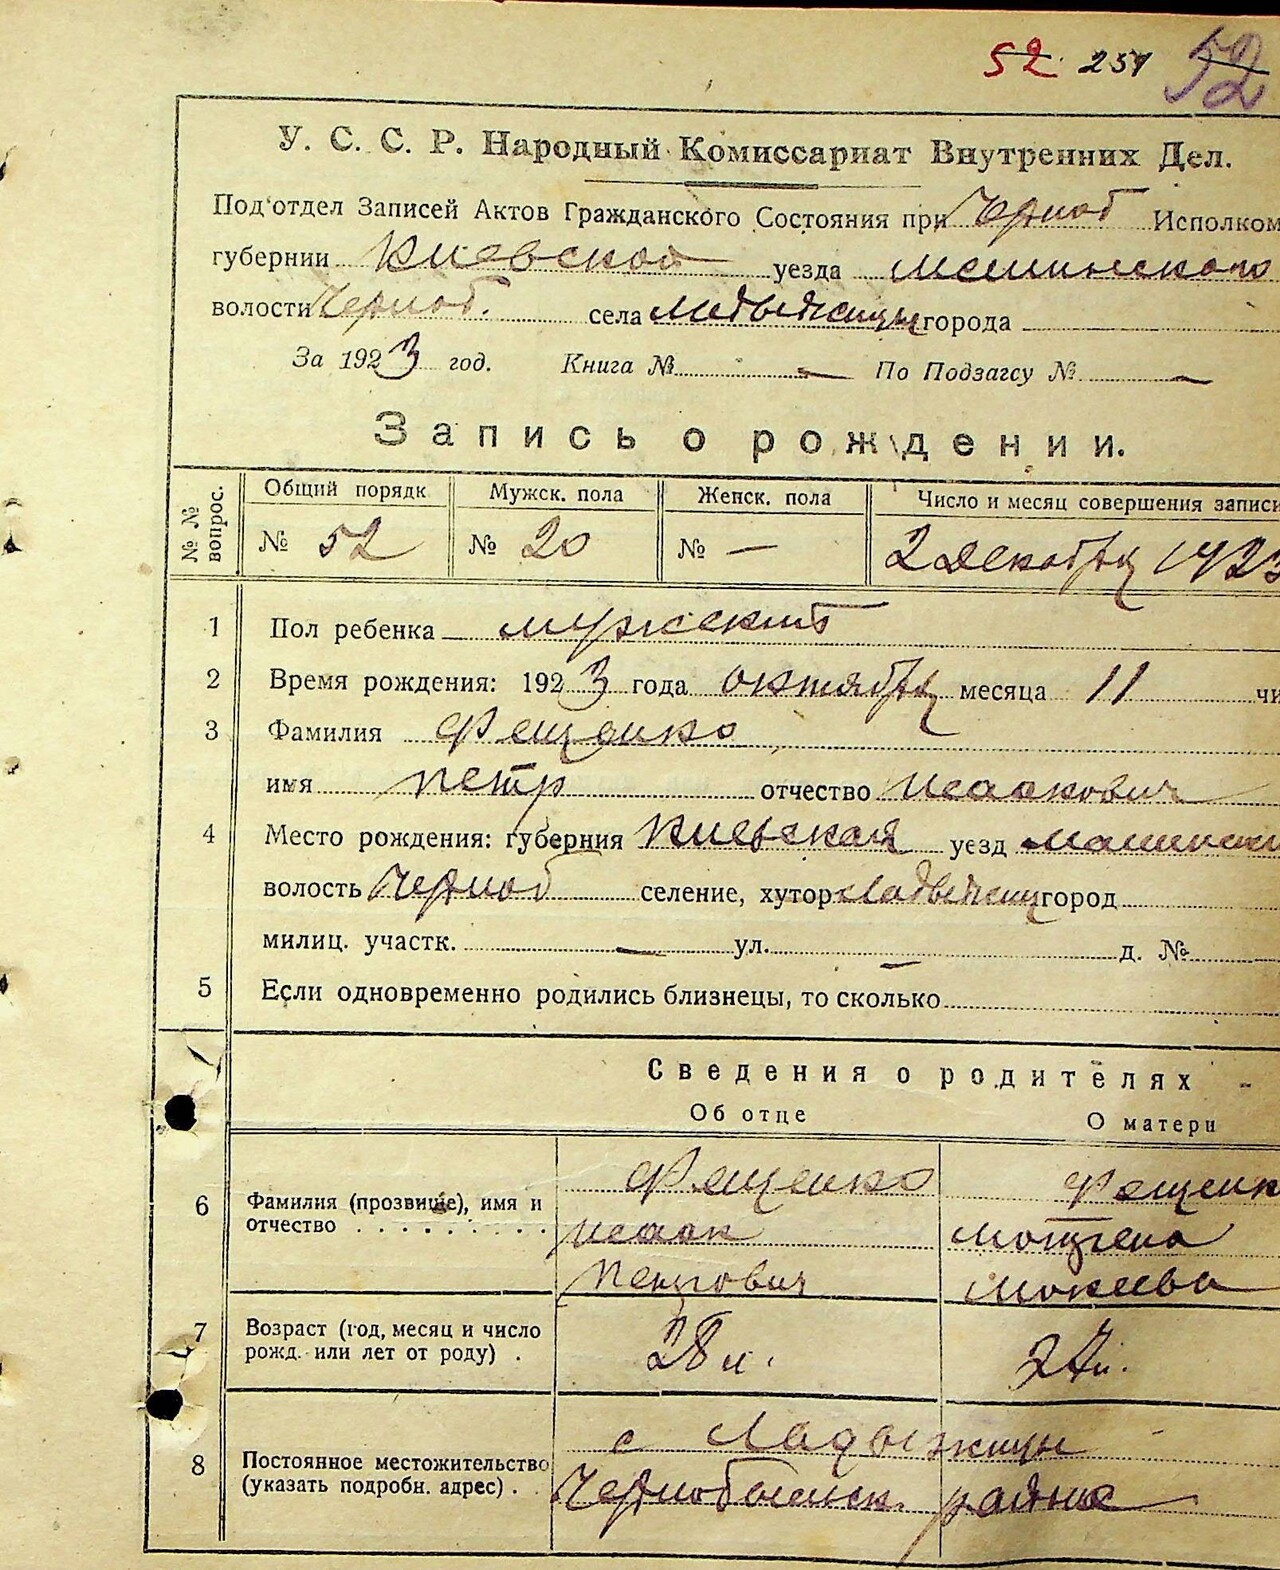 52 251 52
У. С. С. Р. Народный Комиссариат Внутренних Дел.
Под'отдел Записей Актов Гражданского Состояния при Черноб Исполком
губернии Киевской уезда
волости Черноб. села города
За 1923 год. Книга № — По Подзагсу № —
Запись о рождении.
№ № вопрос. Общий порядк Мужск. пола Женск. пола Число и месяц совершения записи
№ 52 № 20 № — 2 декабря 1923
1 Пол ребенка мужской
2 Время рождения: 1923 года октября месяца 11 чи
3 Фамилия Фещенко
имя Петр отчество Исаакович
4 Место рождения: губерния Киевская уезд
волость Черноб селение, хутор город
милиц. участк. — ул. — д. №
5 Если одновременно родились близнецы, то сколько
Сведения о родителях
Об отце О матери
6 Фамилия (прозвище), имя и отчество Фещенко Фещенк
Исаак
Петрович Мокеева
7 Возраст (год, месяц и число рожд. или лет от роду) . 28 л. 27 л.
8 Постоянное местожительство (указать подробн. адрес) . с Ладыжичи
Чернобыльск. района